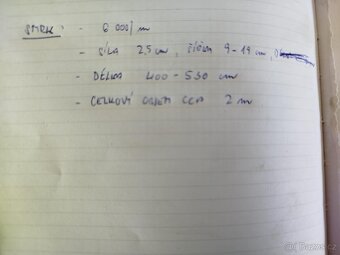 SMRK: - 6 000/m
- SÍLA 2,5 cm, ŠÍŘKA 9-19 cm,
- DÉLKA 400-530 cm
- CELKOVÝ OBJEM CCA 2 m
Bazos.cz